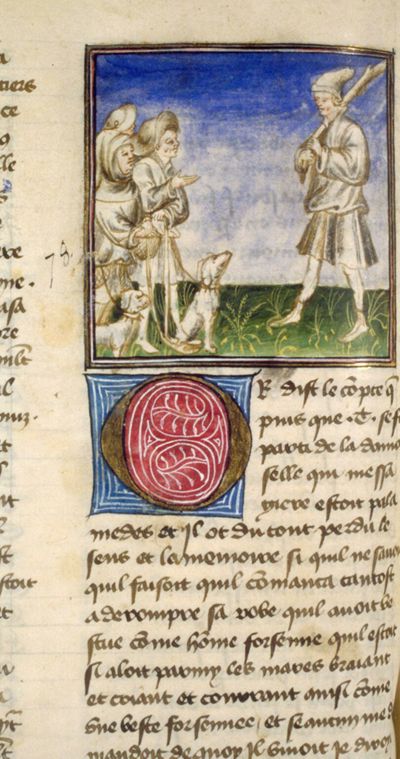 tiers
ce
lle
O R dist le cōpte q̄
puis que .T. se f
parti de la damoi
selle qui messa
giere estoit pala
medes et il ot du tout perdu le
sens et la memoire si quil ne savoi
quil faisoit quil cōmanca tantost
a derompre sa robe quil avoit ve
stue cōme hōme forsenne quil estoit
si aloit parmy les mares braiant
et criant et courant ainsi cōme
une beste forsennee, et se aucun me d
mandoit de quoy il vivoit je diroy